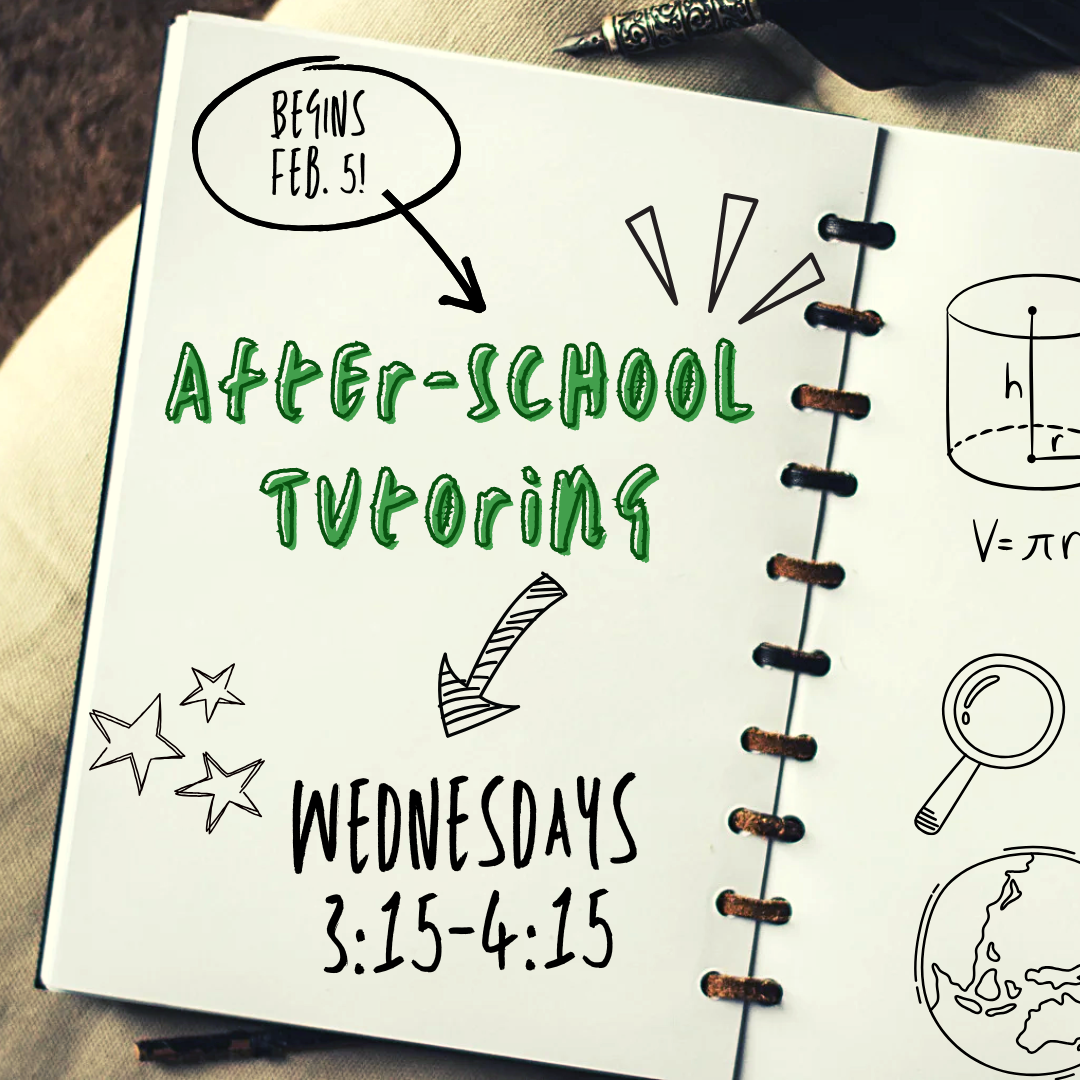 BEGINS
FEB. 5!
AftEr-SCHOOL
TUtOriNG
WEDNESDAYS
3:15-4:15
h
r
V= πr